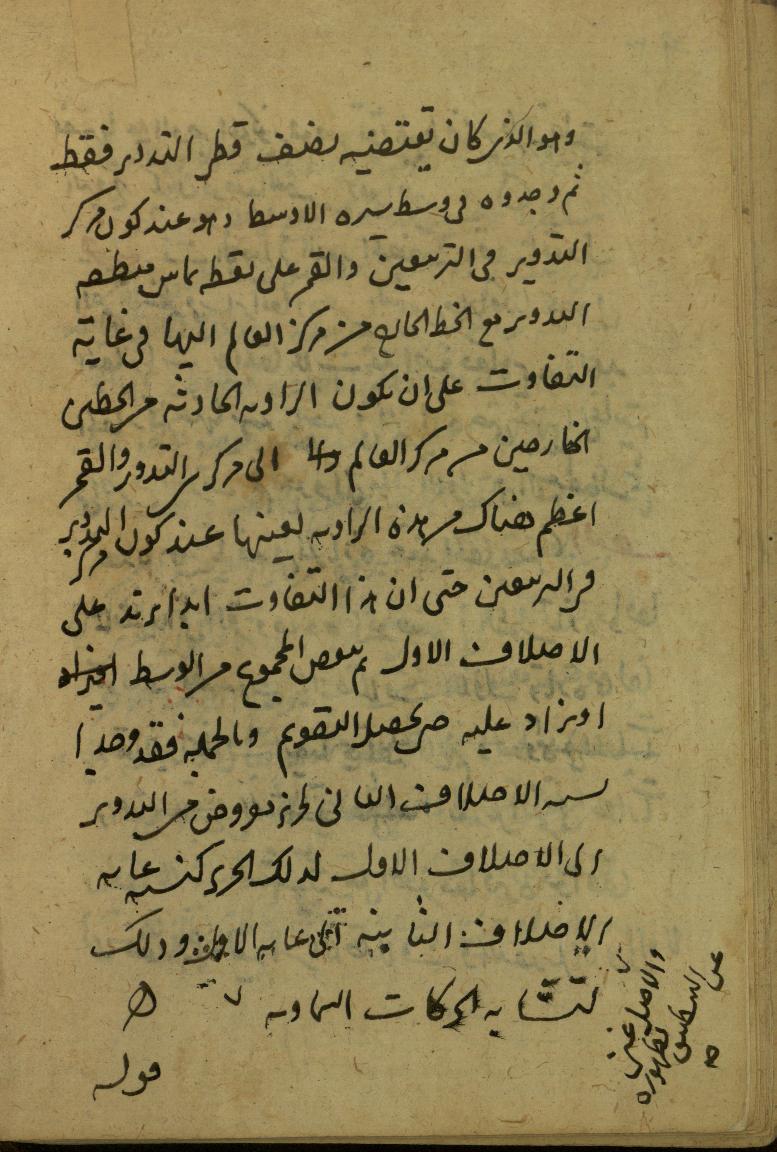 وهو الذى كان يقتضيه نصف قطر التدوير فقط
ثم وجدوه فى وسط سيره الاوسط وهو عند كون مركز
التدوير فى التربيعين والقمر على نقطه تماس منطقه
التدوير مع الخط الخارج من مركز العالم اليها فى غاية
التفاوت على ان تكون الزاويه الحادثه من الخطين
الخارجين من مركز العالم الى مركزى التدوير والقمر
اعظم هناك من هذه الزاويه بعينها عند كون مركز التدوير
فى التربيعين حتى ان هذا التفاوت ابدا يزيد على
الاختلاف الاول ثم ينقص المجموع من الوسط
او يزاد عليه حتى يحصل التقويم وبالجمله فقد وجدوا
نسبه الاختلاف الثانى لجزء مفروض من التدوير
الى الاختلاف الاول لذلك الجزء كنسبه غايه
الاختلاف الثانية الى غايه الاول وذلك
لتشابه الحركات السماويه
قوله